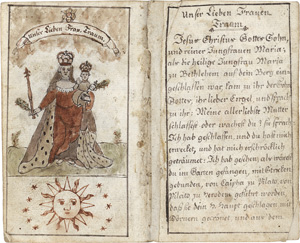 Unser Lieben Frau. Traum
Unser Lieben Frauen
Traum.
Jesus Christus Gottes Sohn,
und reiner Jungfrauen Maria,
als die heilige Jungfrau Maria
zu Bethlehem auf dem Berg ein-
geschlafen war, kam zu ihr der
ihr lieber Engel, und sprach
zu ihr: Meine allerliebste Mutter
schlaffest oder wachest du? sie sprach
Ich hab geschlaffen, und du hast mich
erwecket, und hat mich erschröcklich
geträumet: Ich hab gesehen, als
im Garten gefangen, mit Stricken
gebunden, von Caipha zu Pilato, von
Pilato zu Herodem geführet worden,
dein H. Haupt geschlagen mit
Dörnern gecrönet, und aus dem